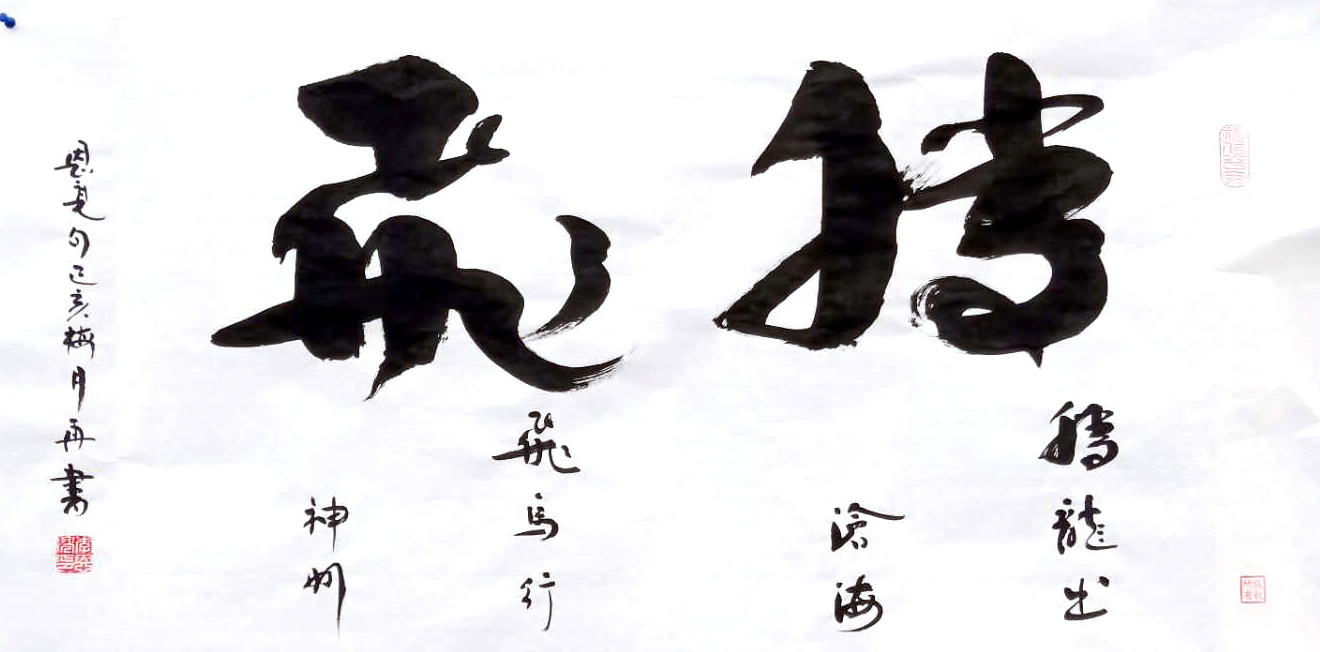 腾飛
腾龍出
滄海
飛馬行
神州
恩亮句己亥梅月再書